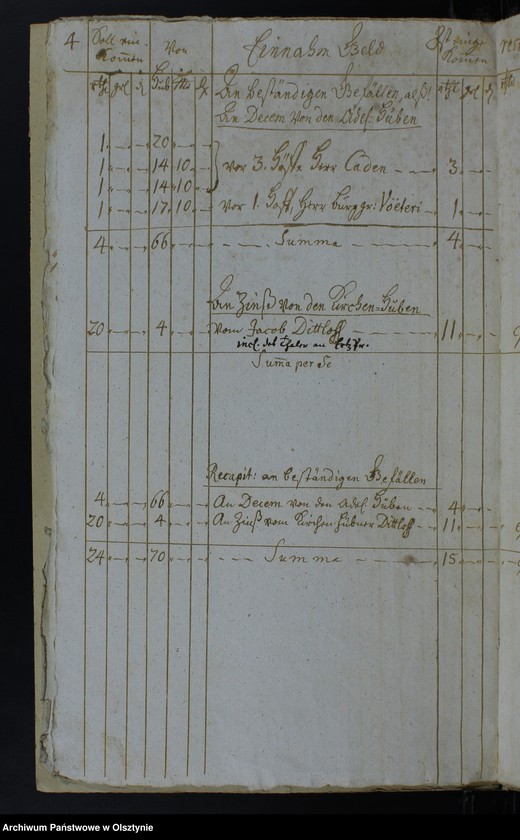 4 Soll ein- Von Einnahm Geld Ist einge
komen komen
rthl gl d Hub Mo R An beständigen Gefällen, als: rthl gl d
An Decem von den Adel. Huben
1 20
1 14 10 vor 3. Höffe Herr Caden 3
1 14 10
1 17 10 vor 1. Hoff, Herr Burggr: Vöeteri 1
4 66 Summa 4
An Zinß von den Kirchen-Huben
20 4 Vom Jacob Dittloff 11
incl. des Thaler an
Suma per Se
Recapit: an beständigen Gefällen
4 66 An Decem von den Adel. Huben 4
20 4 An Zinß vom Kirchen Hübner Dittloff 11
24 70 Summa 15
Archiwum Państwowe w Olsztynie